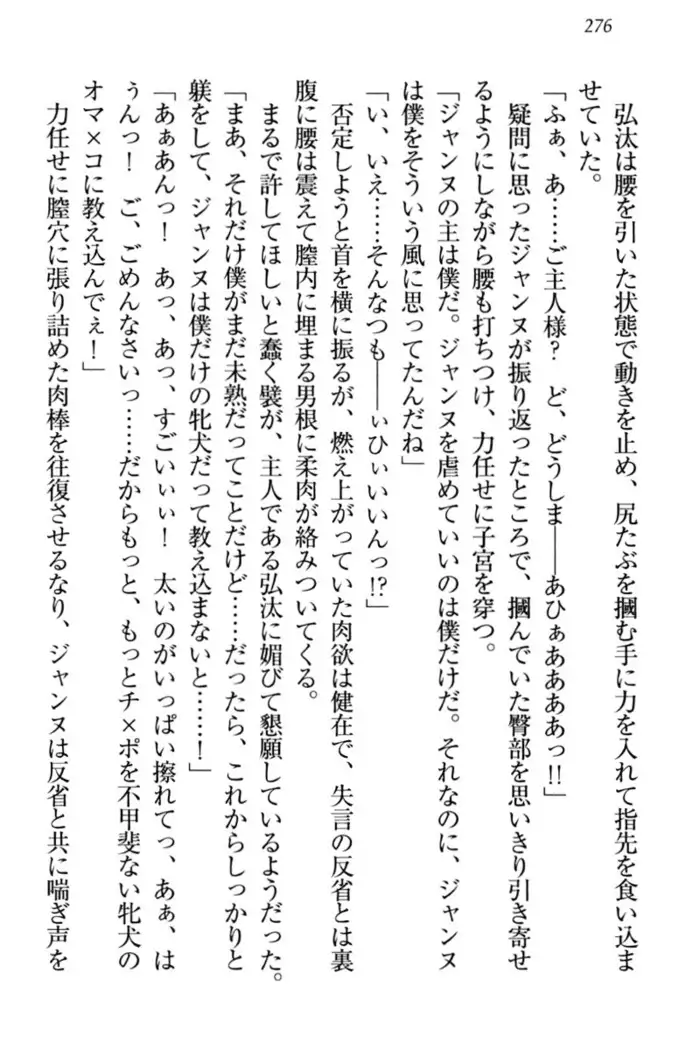 276
弘汰は腰を引いた状態で動きを止め、尻たぶを摑む手に力を入れて指先を食い込ま
せていた。
「ふぁ、あ……ご主人様?　ど、どうしま――あひぁああああっ!!」
疑問に思ったジャンヌが振り返ったところで、摑んでいた臀部を思いきり引き寄せ
るようにしながら腰も打ちつけ、力任せに子宮を穿つ。
「ジャンヌの主は僕だ。ジャンヌを虐めていいのは僕だけだ。それなのに、ジャンヌ
は僕をそういう風に思ってたんだね」
「い、いえ……そんなつも――ぃひぃいいんっ!?」
否定しようと首を横に振るが、燃え上がっていた肉欲は健在で、失言の反省とは裏
腹に腰は震えて膣内に埋まる男根に柔肉が絡みついてくる。
まるで許してほしいと蠢く襞が、主人である弘汰に媚びて懇願しているようだった。
「まあ、それだけ僕がまだ未熟だってことだけど……だったら、これからしっかりと
躾をして、ジャンヌは僕だけの牝犬だって教え込まないと……!」
「あぁあんっ!　あっ、あっ、すごいぃぃ!　太いのがいっぱい擦れてっ、あぁ、は
ぅんっ!　ご、ごめんなさいっ……だからもっと、もっとチ×ポを不甲斐ない牝犬の
オマ×コに教え込んでぇ!」
力任せに膣穴に張り詰めた肉棒を往復させるなり、ジャンヌは反省と共に喘ぎ声を